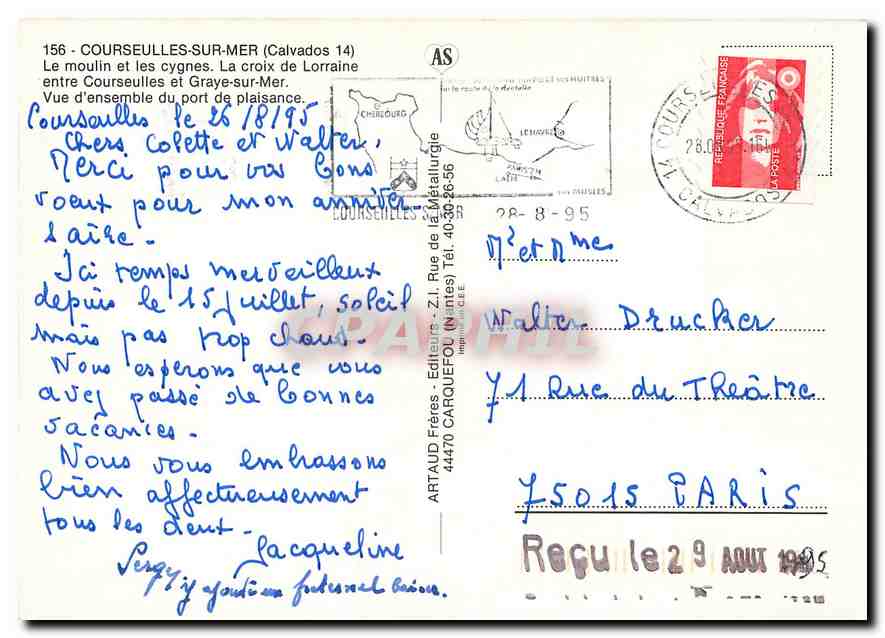 156 - COURSEULLES-SUR-MER (Calvados 14)
Le moulin et les cygnes. La croix de Lorraine
entre Courseulles et Graye-sur-Mer.
Vue d'ensemble du port de plaisance.
Courseulles le 26/8/95
Chers Colette et Walter,
Merci pour vos bons
voeux pour mon anniver-
saire.
Ici temps merveilleux
depuis le 15 juillet, soleil
mais pas trop chaud.
Nous esperons que vous
avez passé de bonnes
vacances.
Nous vous embrassons
bien affectueusement
tous les deux.
Jacqueline
Serge y ajoute un fraternel baiser.
AS
ARTAUD Frères - Editeurs - Z.I. Rue de la Métallurgie
44470 CARQUEFOU (Nantes) Tél. 40-30-26-56
Imprimé en C.E.E.
HUITRES
sur la route de la dentelle
CHERBOURG
LE HAVRE
PARIS 2H
CAEN
COURSEULLES S/MER 28-8-95
14 COURSEULLES
CALVADOS
REPUBLIQUE FRANÇAISE
LA POSTE
Mr et Mme
Walter Drucker
71 Rue du Théâtre
75015 PARIS
Reçu le 29 AOUT 1995
CPAPHIL